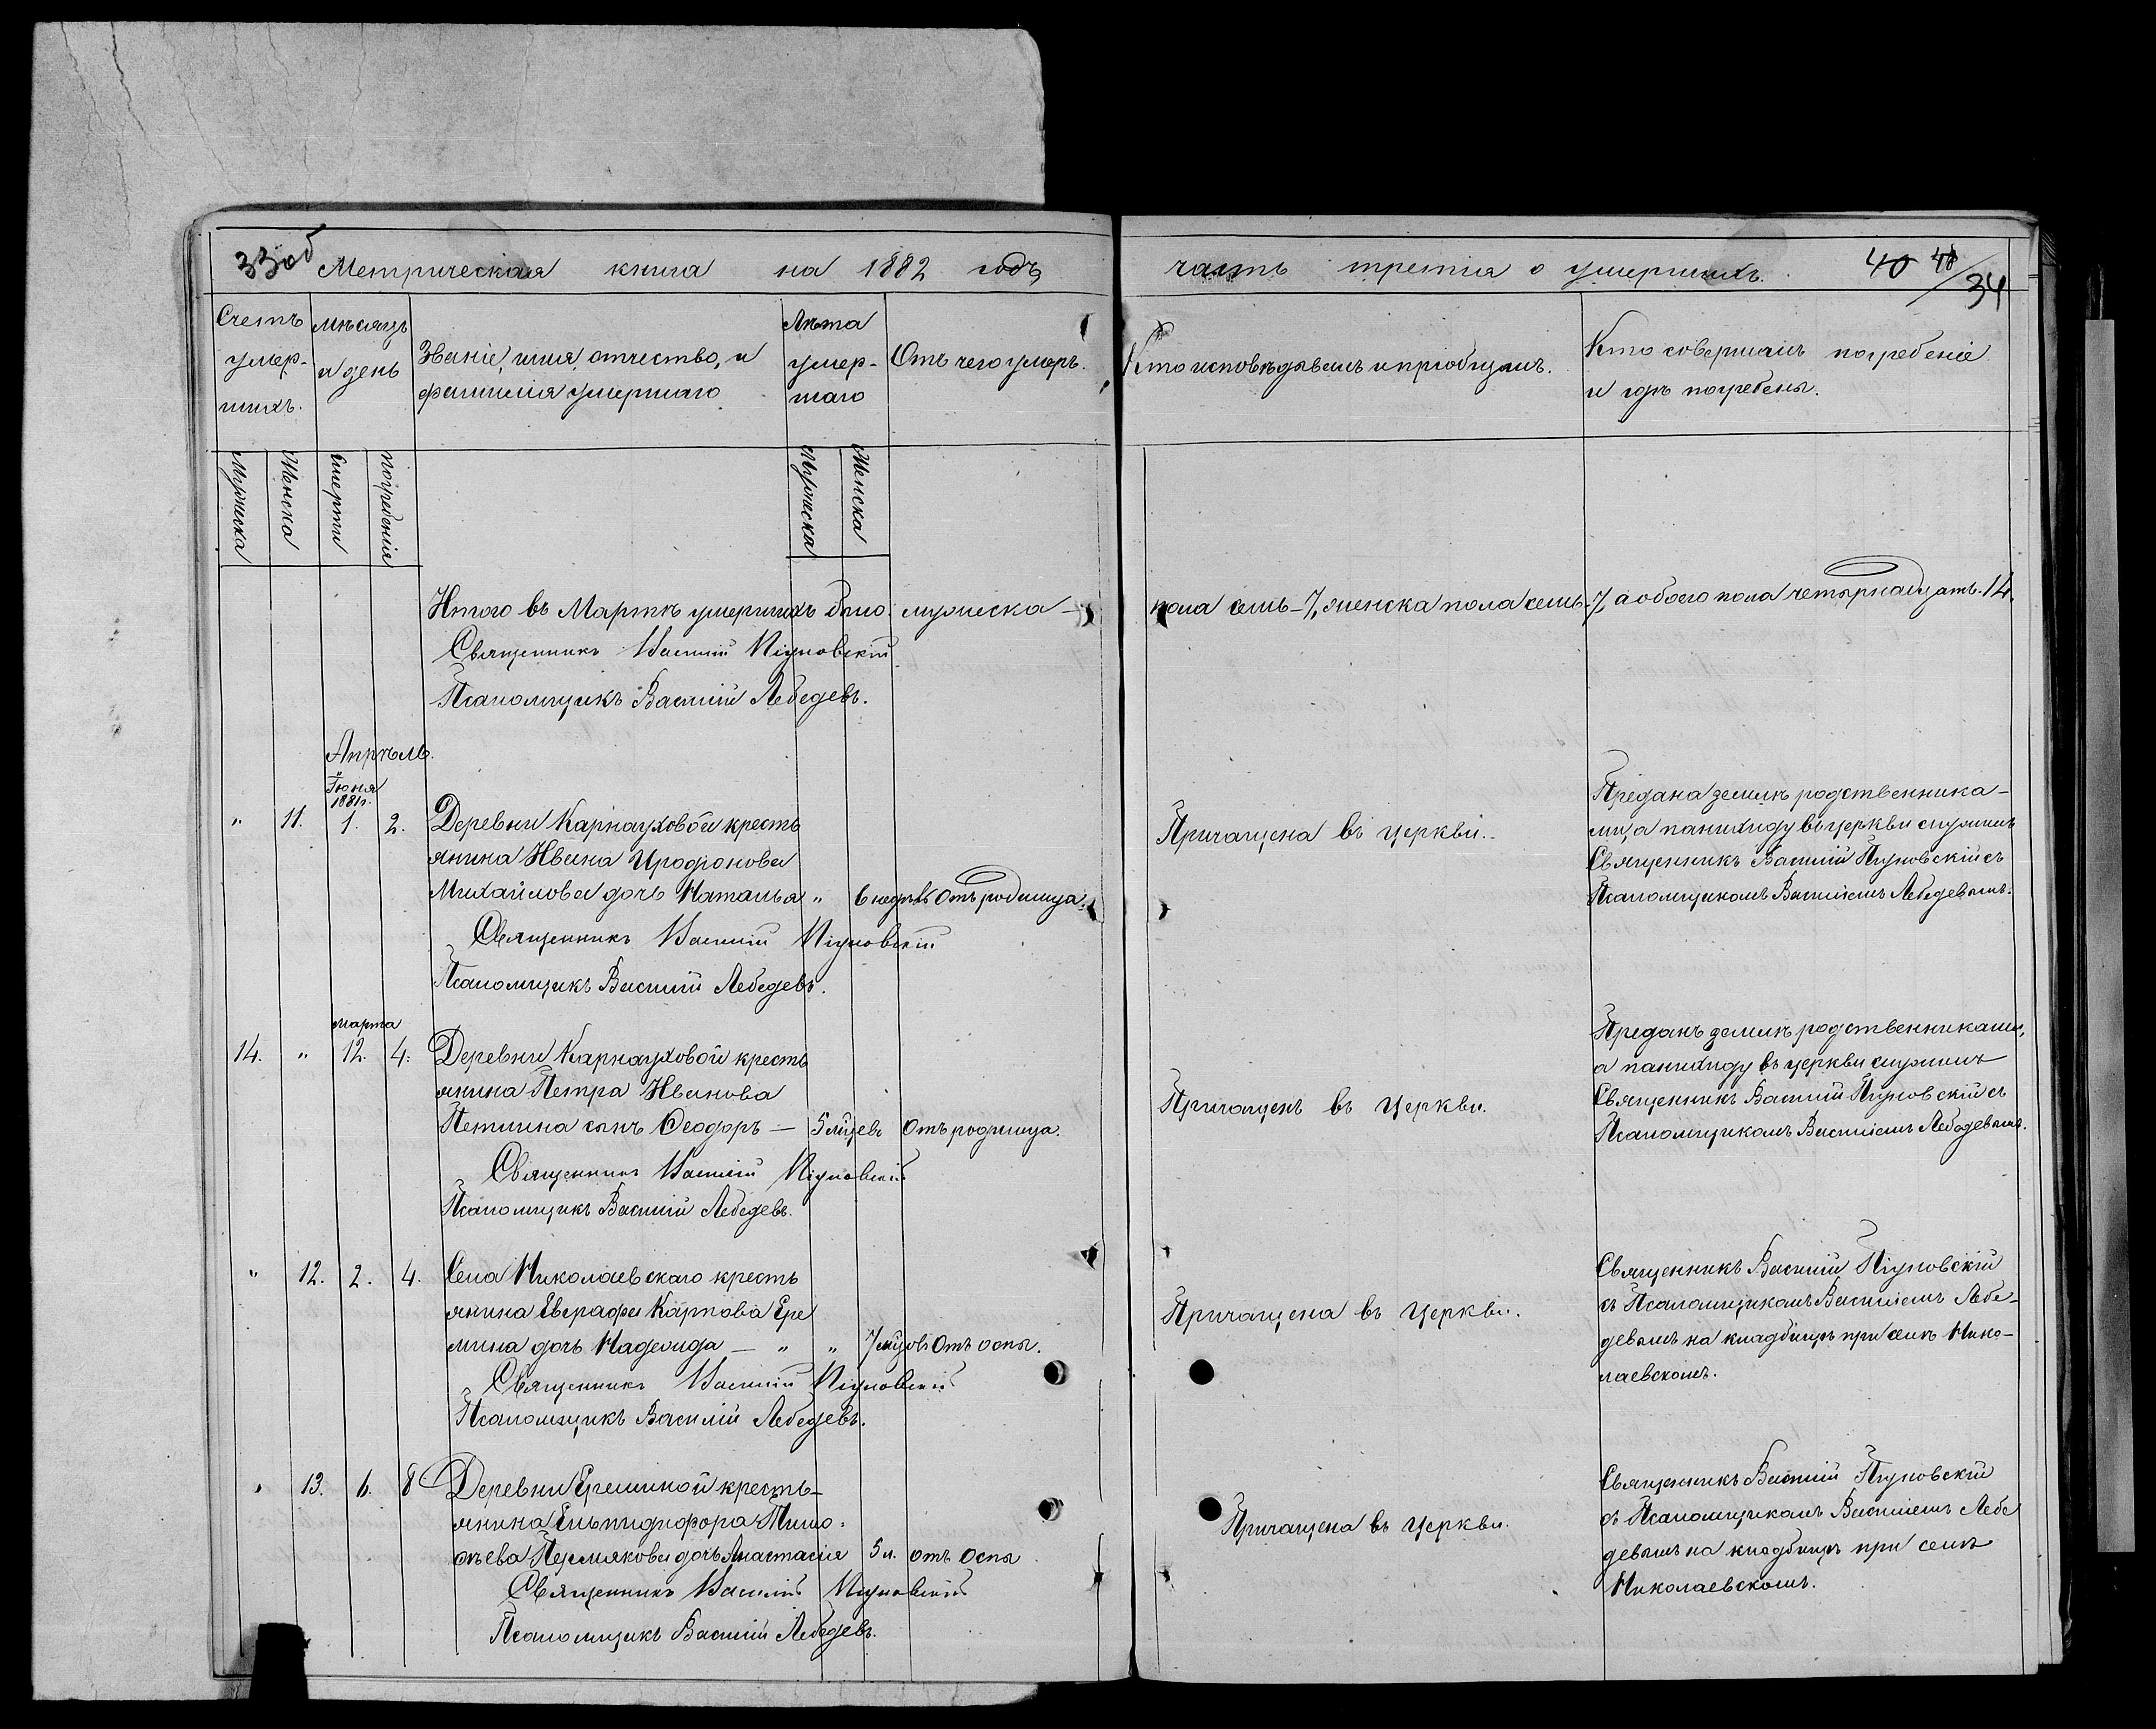 33об Метрическая книга на 1882 годъ
часть третія о умершихъ. 40 48/34
Счетъ умер- шихъ.
мѣсяцъ и день
Званіе, имя, отчество, и
фамилія умершаго
Лѣта умер- шаго
Отъ чего умеръ.
Кто исповѣдывалъ и пріобщалъ.
Кто совершалъ погребеніе
и гдѣ погребены.
Мужеска Женска Смерти Погребенія Мужеска Женска
Итого въ Мартѣ умершихъ было: мужеска – пола семь – 7, женска пола семь – 7, а обоего пола четырнадцать. 14.
Священникъ Василій
Псаломщикъ Василій Лебедевъ.
Апрѣль.
Іюня
1881г.
" 11. 1. 2. Деревни Карнауховой кресть
янина Ивана Иродіонова
Михайлова дочь Наталья " 6 недѣль Отъ родимца.
Священникъ Василій
Псаломщикъ Василій Лебедевъ.
Причащена въ церкви.
Предана землѣ родственника-
ми, а панихиду въ церкви служилъ
Священникъ Василій съ
Псаломщикомъ Василіемъ Лебедевымъ.
марта
14. " 12. 4. Деревни Карнауховой кресть
янина Петра Иванова
сынъ Ѳеодоръ – 5 мцевъ Отъ родимца.
Священникъ Василій
Псаломщикъ Василій Лебедевъ.
Причащенъ въ Церкви.
Преданъ землѣ родственниками,
а панихиду въ церкви служилъ
Священникъ Василій съ
Псаломщикомъ Василіемъ Лебедевымъ.
" 12. 2. 4. Села Николаевскаго кресть
янина Евграфа Карпова Ере
мина дочь Надежда – " " 7 мцовъ Отъ оспы.
Священникъ Василій
Псаломщикъ Василій Лебедевъ.
Причащена въ Церкви.
Священникъ Василій
съ Псаломщикомъ Василіемъ Лебе-
девымъ на кладбищѣ при селѣ Нико-
лаевскомъ.
" 13. 6. 8 Деревни Ереминой кресть-
янина Елпидифора Тимо-
ѳѣева Пермякова дочь Анастасія 5 л. отъ Оспы
Священникъ Василій
Псаломщикъ Василій Лебедевъ.
Причащена въ Церкви.
Священникъ Василій
съ Псаломщикомъ Василіемъ Лебе
девымъ на кладбищѣ при селѣ
Николаевскомъ.